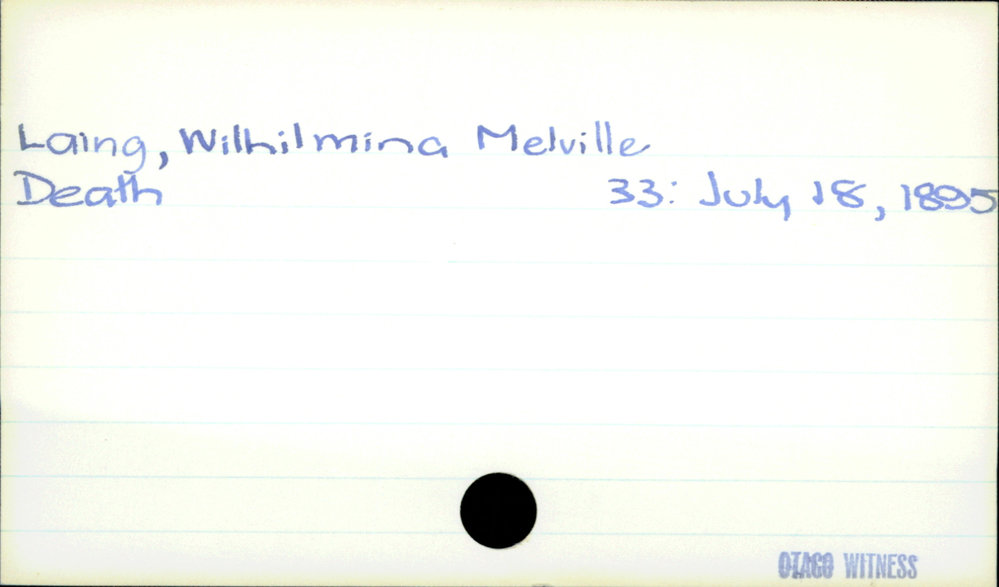 Laing, Wilhilmina Melville
Death 33: July 18, 1895
OTAGO WITNESS